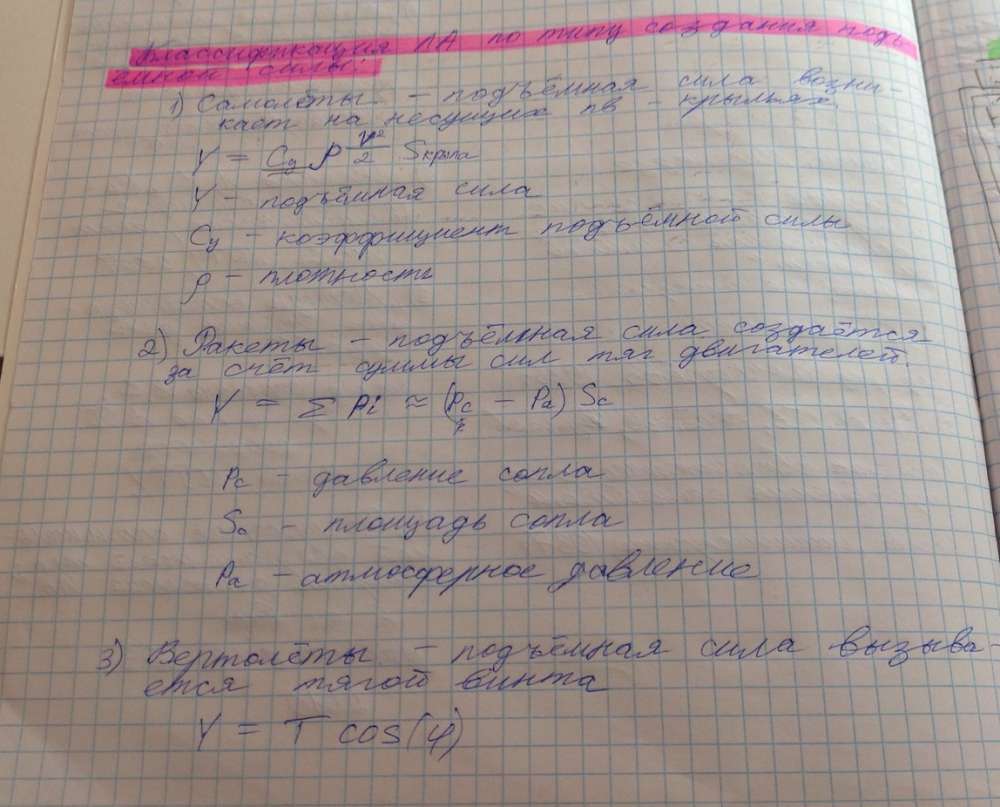 Классификация ЛА по типу создания подъ
ёмной силы:
1) Самолёты – подъёмная сила возни-
кает на несущих пв - крыльях.
Y = Cy ρ V²/2 Sкрыла
Y – подъёмная сила
Cy – коэффициент подъёмной силы
ρ – плотность
2) Ракеты – подъёмная сила создаётся
за счёт суммы сил тяг двигателей.
Y = Σ Pi ≈ (Pc – Pa) Sc
Pc – давление сопла
Sc – площадь сопла
Pa – атмосферное давление
3) Вертолёты – подъёмная сила вызыва-
ется тягой винта
Y = T cos(φ)